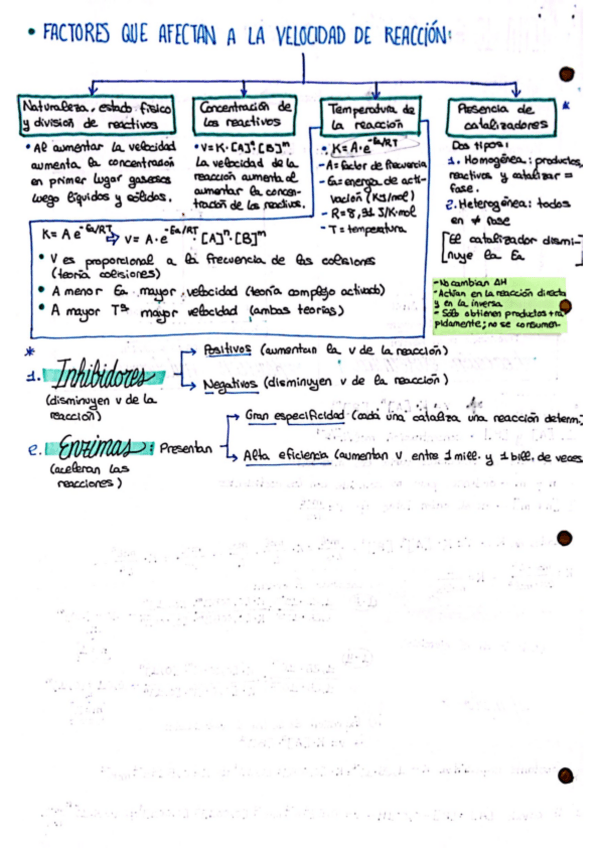 • FACTORES QUE AFECTAN A LA VELOCIDAD DE REACCIÓN:
Naturaleza, estado físico
y división de reactivos
• Al aumentar la velocidad
aumenta la concentración
en primer lugar gaseosos
luego líquidos y sólidos.
Concentración de
los reactivos
• V=K·[A]ⁿ·[B]ᵐ
La velocidad de la
reacción aumenta al
aumentar la concen-
tración de los reactivos.
Temperatura de
la reacción
• K=A·e^-Ea/RT
- A= factor de frecuencia
- Ea= energía de acti-
vación (KJ/mol)
- R=8,31 J/K·mol
- T= temperatura
Presencia de
catalizadores *
Dos tipos:
1. Homogénea: productos,
reactivos y catalizar =
fase.
2. Heterogénea: todos
en ≠ fase
[El catalizador dismi-
nuye la Ea]
- No cambian ΔH
- Actúan en la reacción directa
y en la inversa
- Sólo obtienen productos +rá
pidamente; no se consumen.
K= A e^-Ea/RT ⇒ V= A·e^-Ea/RT·[A]ⁿ·[B]ᵐ
• V es proporcional a la frecuencia de las colisiones
(teoría colisiones)
• A menor Ea mayor velocidad (teoría complejo activado)
• A mayor Tª mayor velocidad (ambas teorías)
*
1. Inhibidores
(disminuyen v de la
reacción)
→ Positivos (aumentan la v de la reacción)
→ Negativos (disminuyen v de la reacción)
2. Enzimas: Presentan
(aceleran las
reacciones)
→ Gran especificidad (cada una cataliza una reacción determ.
→ Alta eficiencia (aumentan v entre 1 mill. y 1 bill. de veces